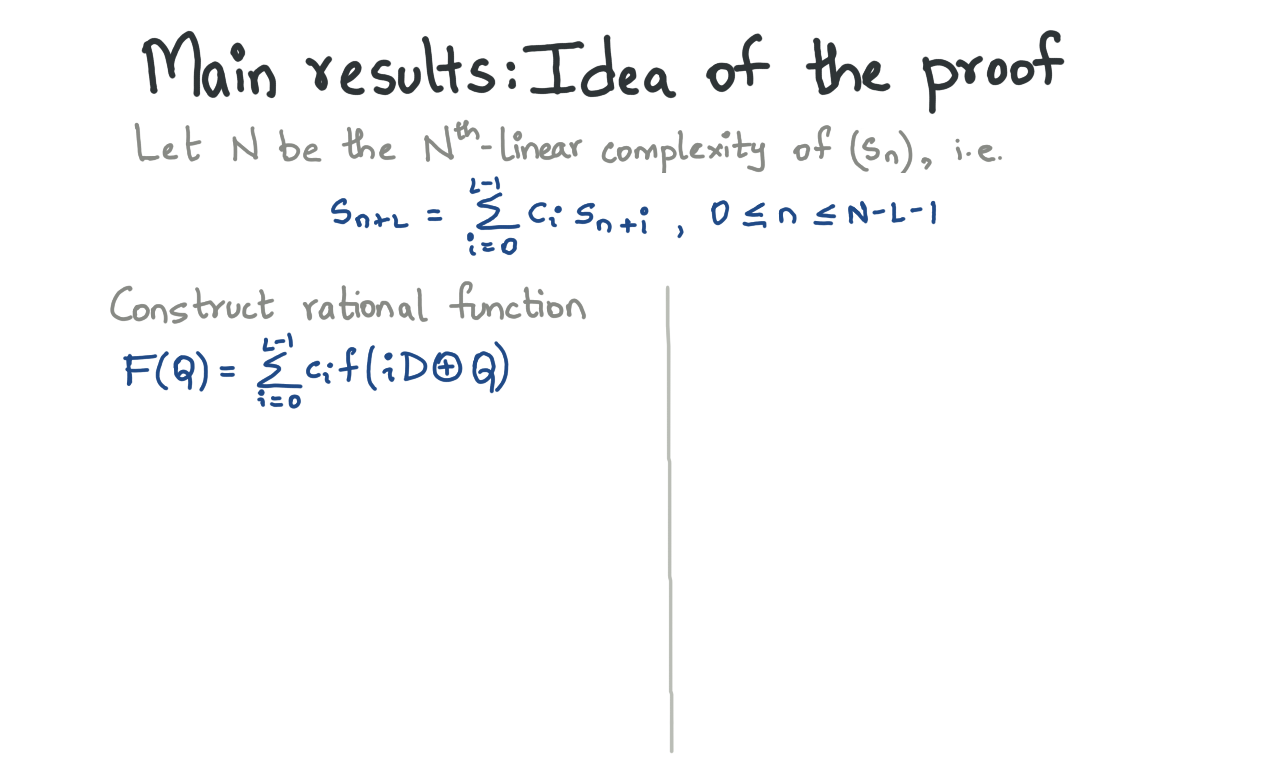 Main results: Idea of the proof
Let N be the Nᵗʰ-linear complexity of (sₙ), i.e.
s_{n+L} = \sum_{i=0}^{L-1} c_i s_{n+i} , 0 ≤ n ≤ N-L-1
Construct rational function
F(Q) = \sum_{i=0}^{L-1} c_i f(iD ⊕ Q)